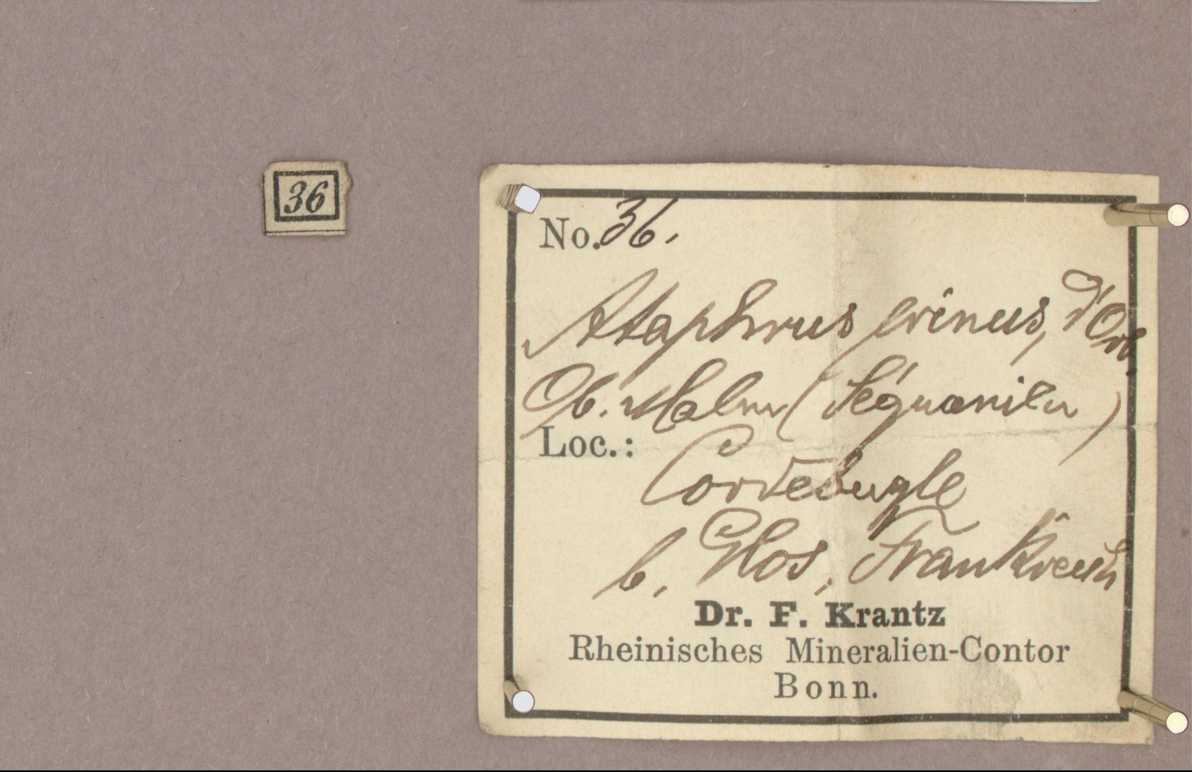 36
No. 36.
Ataphrus crinus, d'Orb.
Ob. Malm (Séquanien)
Loc.:
Cordebugle
b. Glos, Frankreich
Dr. F. Krantz
Rheinisches Mineralien-Contor
Bonn.